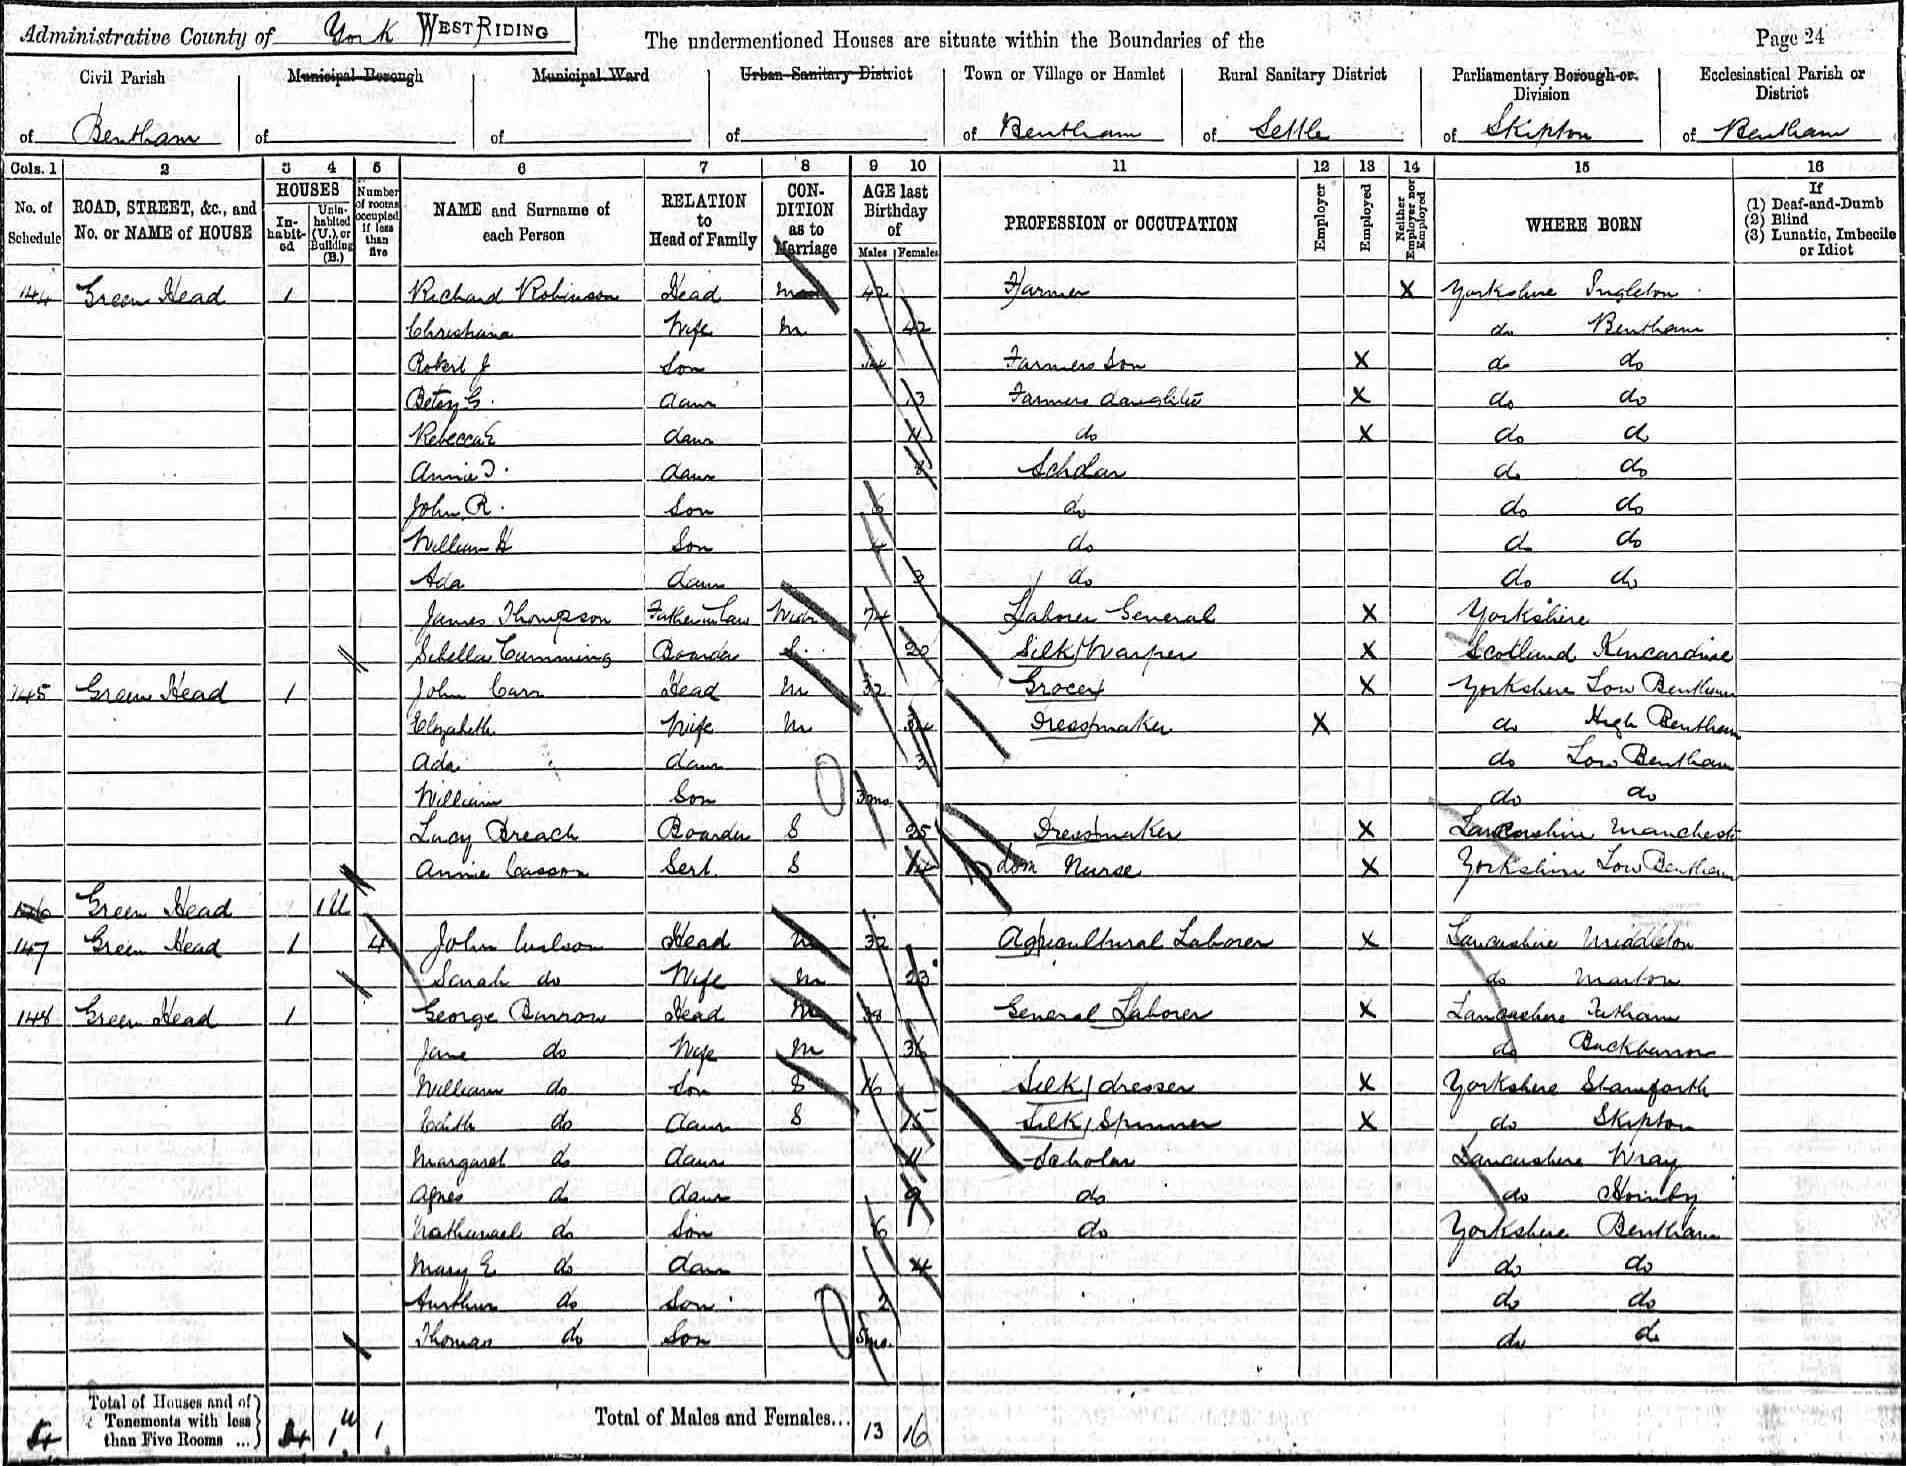 Administrative County of York WEST RIDING
The undermentioned Houses are situate within the Boundaries of the
Page 24
Civil Parish
Municipal Borough
Municipal Ward
Urban Sanitary District
Town or Village or Hamlet
Rural Sanitary District
Parliamentary Borough or Division
Ecclesiastical Parish or District
of Bentham of of of of Bentham of Settle of Skipton of Bentham
Cols. 1 2 3 4 5 6 7 8 9 10 11 12 13 14 15 16
No. of Schedule
ROAD, STREET, &c., and No. or NAME of HOUSE
HOUSES
In-habit-ed
Unin-habited (U.), or Building (B.)
Number of rooms occupied if less than five
NAME and Surname of each Person
RELATION to Head of Family
CON-DITION as to Marriage
AGE last Birthday of
Males Females
PROFESSION or OCCUPATION
Employer
Employed
Neither Employer nor Employed
WHERE BORN
If
(1) Deaf-and-Dumb
(2) Blind
(3) Lunatic, Imbecile or Idiot
144 Green Head 1 Richard Robinson Head M 42 Farmer X Yorkshire Ingleton
Christiana Wife M 42 do Bentham
Robert J Son 14 Farmers Son X do do
Betsy G. daur 13 Farmers daughter X do do
Rebecca E daur 11 do X do do
Annie I. daur 8 Scholar do do
John R. Son 6 do do do
William H Son 4 do do do
Ada daur 3 do do do
James Thompson Father in Law Widr 74 Laborer General X Yorkshire
Sibella Cumming Boarder S. 20 Silk Warper X Scotland Kincardine
145 Green Head 1 John Carr Head M 32 Grocer X Yorkshire Low Bentham
Elizabeth Wife M 34 Dressmaker X do High Bentham
Ada daur 3 do Low Bentham
William Son 3mo do do
Lucy Breach Boarder S 25 Dressmaker X Lancashire Manchester
Annie Casson Servt. S 14 dom Nurse X Yorkshire Low Bentham
146 Green Head 1U
147 Green Head 1 4 John Wilson Head M 32 Agricultural Laborer X Lancashire Middleton
Sarah do Wife M 23 do
148 Green Head 1 George Barrow Head M 38 General Laborer X Lancashire Tatham
Jane do Wife M 36 do Backbarrow
William do Son S 16 Silk dresser X Yorkshire Stainforth
Edith do daur S 15 Silk Spinner X do Skipton
Margaret do daur 11 Scholar Lancashire Wray
Agnes do daur 9 do do Hornby
Nathanael do Son 6 do Yorkshire Bentham
Mary E do daur 4 do do
Aurthur do Son 2 do do
Thomas do Son 5mo. do do
Total of Houses and of Tenements with less than Five Rooms ... 4 1U 1 Total of Males and Females... 13 16